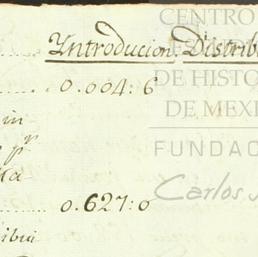 CENTRO
DE HISTO
DE MEXI
FUNDAC
Carlos
Introducion Distrib
0.004:6
in
0.627:0
ribui